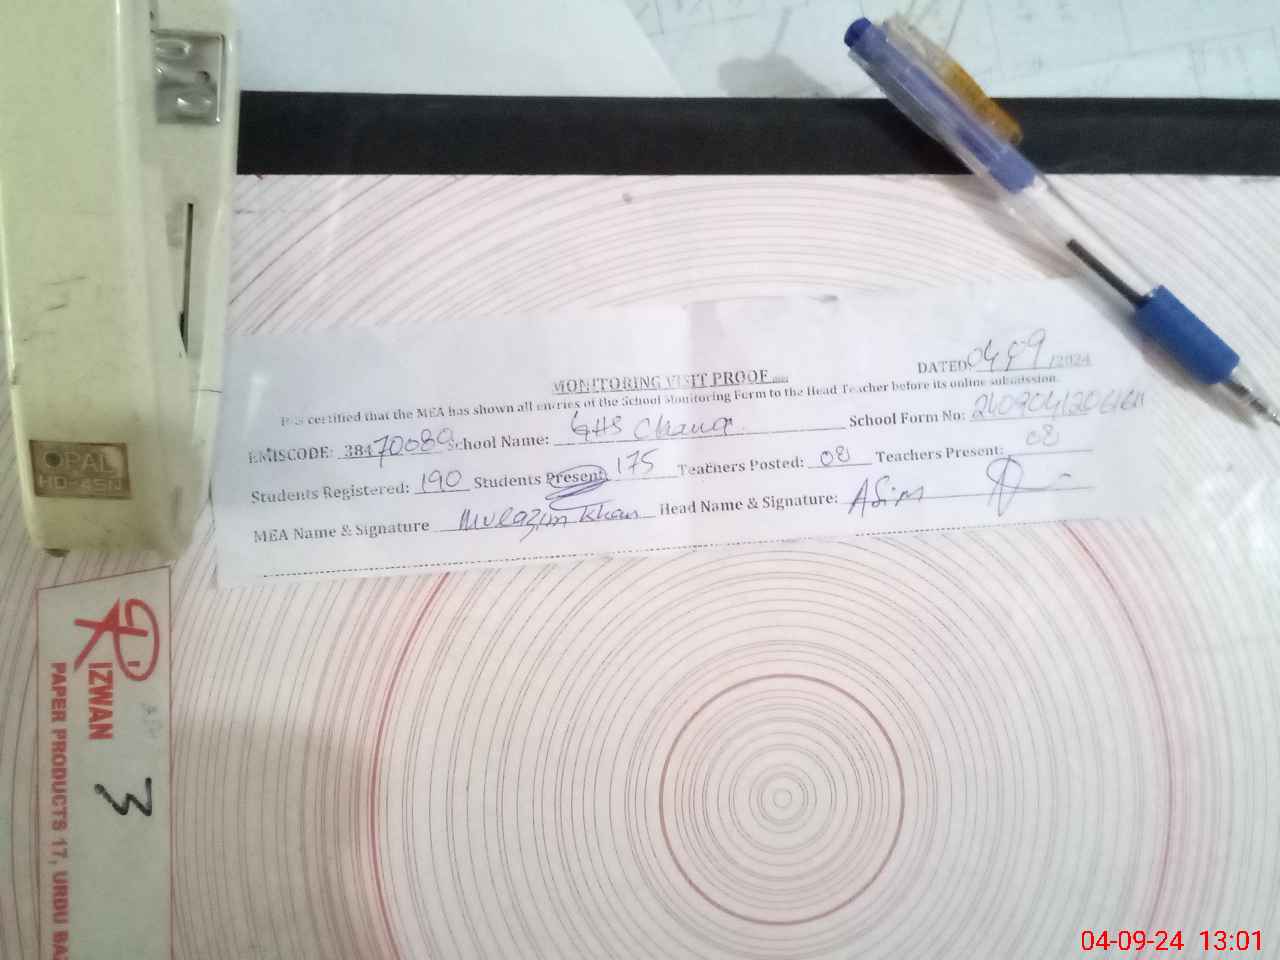 MONITORING VISIT PROOF
DATED 04/09/2024
It is certified that the MEA has shown all entries of the School Monitoring Form to the Head Teacher before its online submission.
EMISCODE: 38470080 School Name: GHS School Form No:
Students Registered: 190 Students Present 175 Teachers Posted: 08 Teachers Present: 08
MEA Name & Signature Mulazim Khan Head Name & Signature: Asim
OPAL
HD-45N
RIZWAN
PAPER PRODUCTS 17, URDU BA
3
04-09-24 13:01